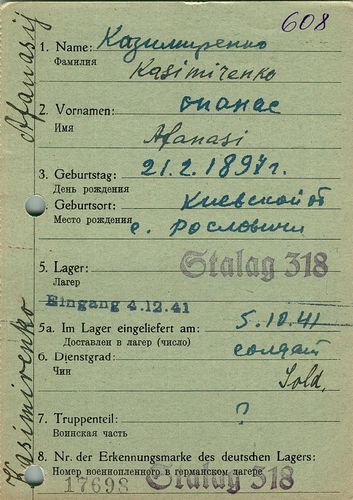 608
1. Name: Казимиренко
Фамилия Kasimirenko
2. Vornamen: опанас
Имя Afanasi
3. Geburtstag: 21.2.1897г.
День рождения
4. Geburtsort: Киевской об
Место рождения с. Рословичи
5. Lager: Stalag 318
Лагер
Eingang 4.12.41
5a. Im Lager eingeliefert am: 5.10.41
Доставлен в лагер (число)
6. Dienstgrad: солдат
Чин Sold.
7. Truppenteil: ?
Воинская часть
8. Nr. der Erkennungsmarke des deutschen Lagers:
Номер военнопленного в германском лагере
17698 Stalag 318
Kasimirenko Afanasij